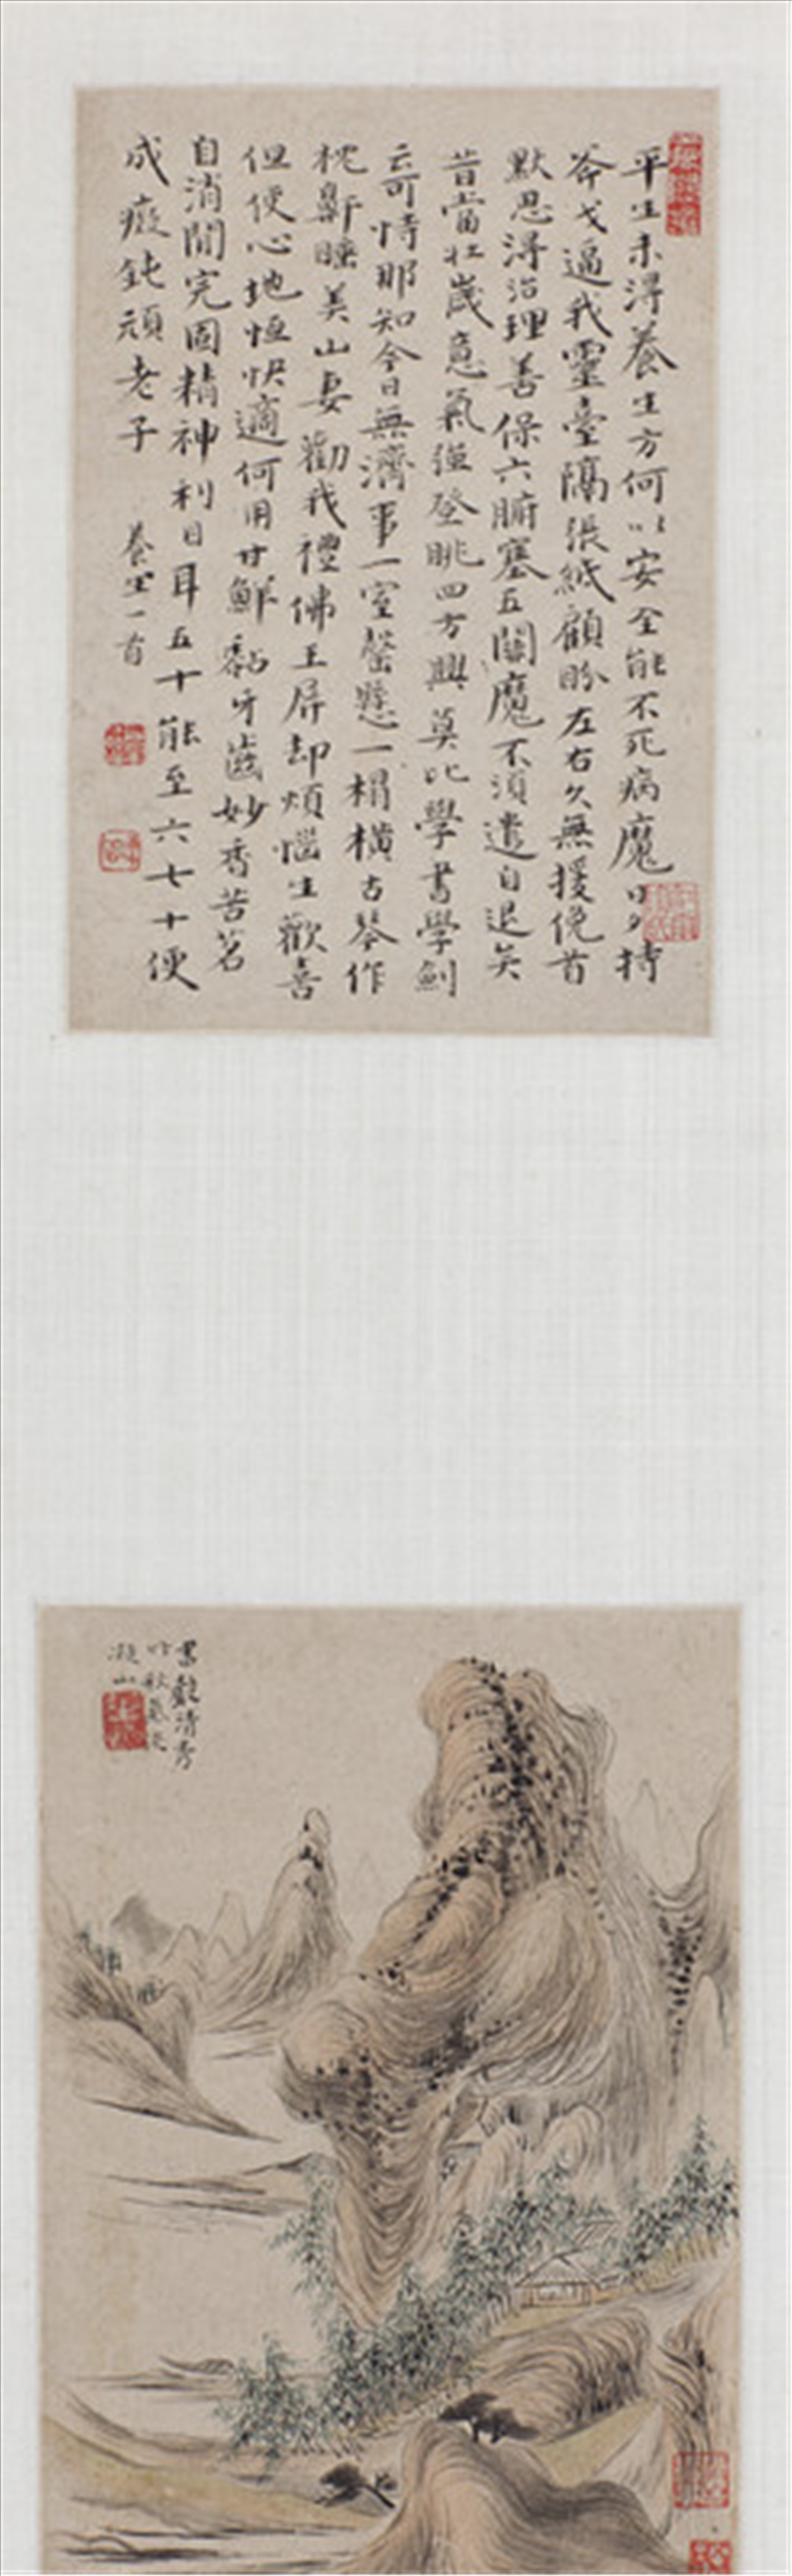 平生未得養生方何以安全能不死病魔日夕持
斧戈逼我靈臺隔張紙顧盼左右久無援俛首
默思得治理善保六腑塞五關魔不須遣自退矣
昔當壯歲意氣強登眺四方興莫比學書學劍
云可恃那知今日無濟事一室罄懸一榻橫古琴作
枕鼾睡美山妻勸我禮佛王屏却煩惱生歡喜
但使心地恒快適何用甘鮮黏牙齒妙香苦茗
自消閒完固精神利目耳五十能至六七十便
成癡鈍頑老子
養生一首